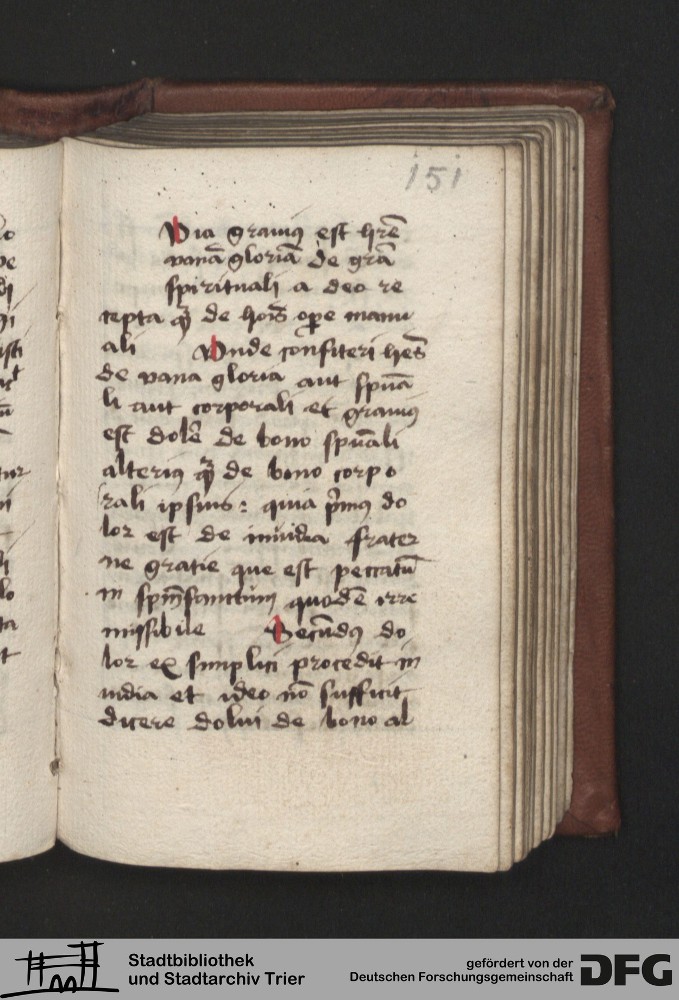 151
Quia grauiꝯ est hr̄e
vanā gloriā de grā
spirituali a deo re
cepta q̄ de hoīs oꝑe manu
ali Vnde confiteri hēs
de vana gloria aut spūa
li aut corporali et grauiꝯ
est dolē de bono spūali
alteriꝯ q̄ de bono corpo
rali ipsius: quia p̄mus do
lor est de inuidia frater
ne gratie que est peccatū
in spm̄sanctum quodē irre
missibile Secūdꝯ do
lor ex simplici procedit in
uidia et ideo nō sufficit
dicere dolui de bono al
Stadtbibliothek
und Stadtarchiv Trier
gefördert von der
Deutschen Forschungsgemeinschaft
DFG